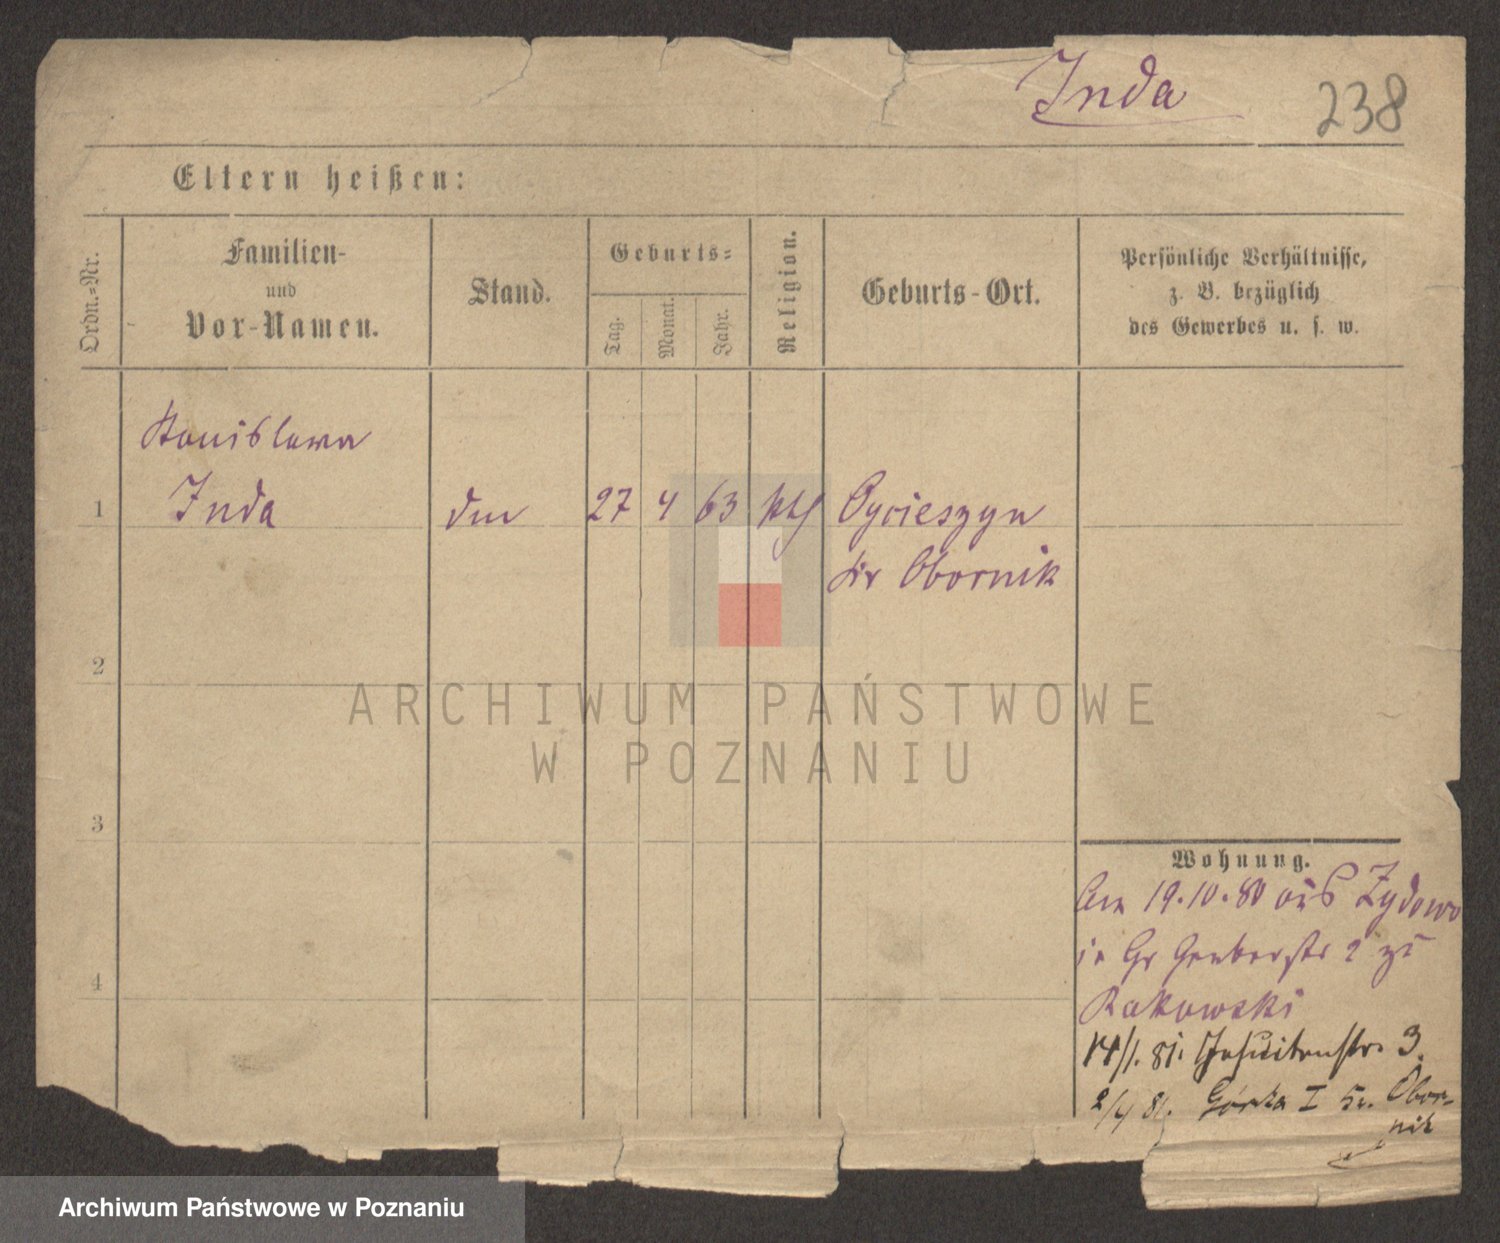 Inda
238
Eltern heißen:
Ordn.-Nr.
Familien-
und
Vor-Namen.
Stand.
Geburts-
Tag.
Monat.
Jahr.
Religion.
Geburts-Ort.
Persönliche Verhältnisse,
z. B. bezüglich
des Gewerbes u. s. w.
Stanislawa
1 Inda 27 4 63 kth Ocieszyn
Kr Obornik
2
3
4
Wohnung.
Am 19.10.80 aus Zydowo
in Gr Gerberstr 2 zu
Rakowski
14/1. 81. Jesuitenstr. 3.
2/4 81. Górka I Kr. Obor-
nik
ARCHIWUM PAŃSTWOWE
W POZNANIU
Archiwum Państwowe w Poznaniu